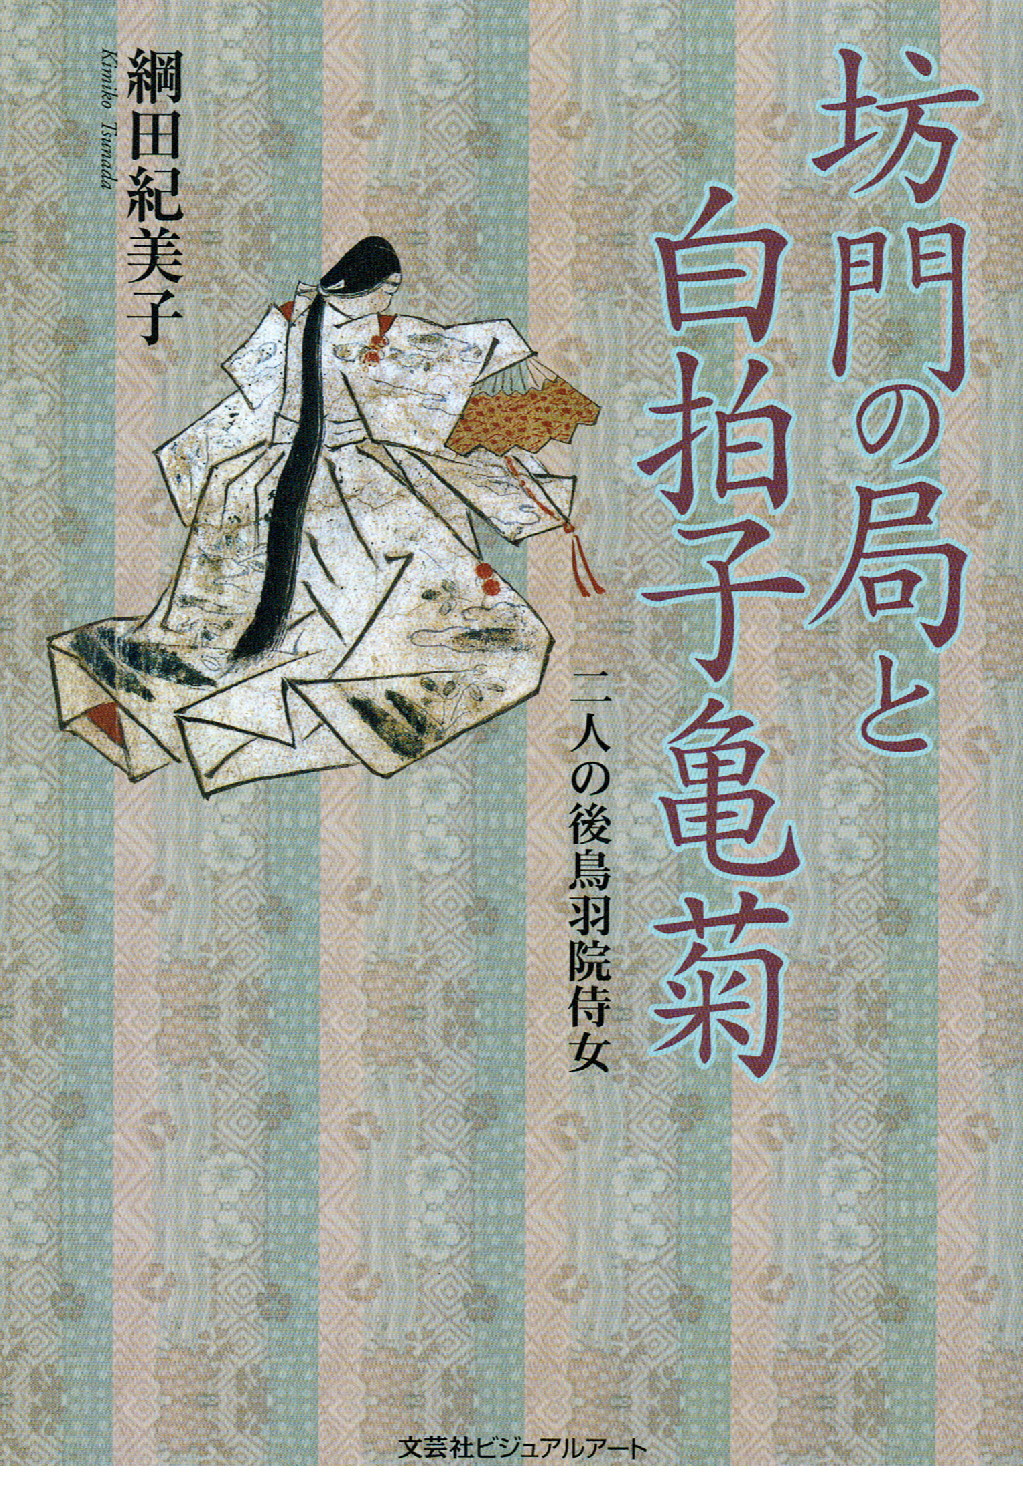 坊門の局と
白拍子亀菊
二人の後鳥羽院侍女
綱田紀美子
Kimiko Tsunada
文芸社ビジュアルアート